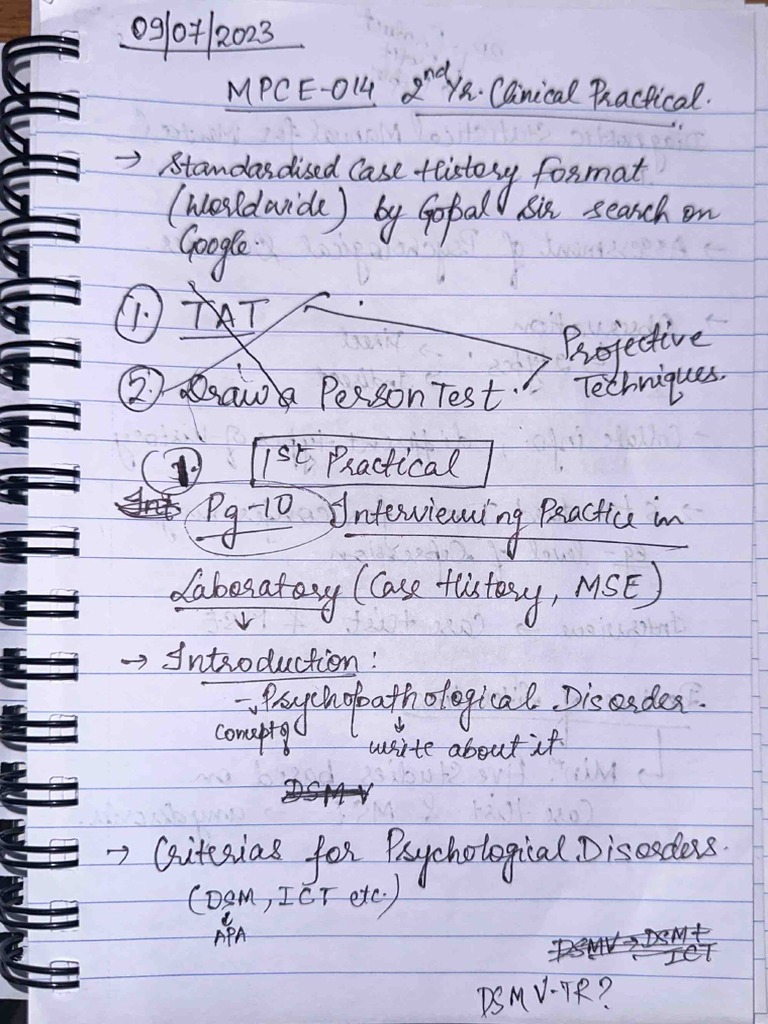 09/07/2023
MPCE-014 2nd Yr. Clinical Practical.
→ Standardised Case History format
(Worldwide) by Gopal Sir search on
Google.
1. TAT
2. Draw a Person Test.
Projective
Techniques.
1. 1st Practical
Int Pg-10 Interviewing Practice in
Laboratory (Case History, MSE)
→ Introduction:
- Psychopathological Disorder.
concept of
write about it
DSM V
→ Criterias for Psychological Disorders.
(DSM, ICT etc.)
APA
DSMV → DSM +
ICT
DSM V-TR?